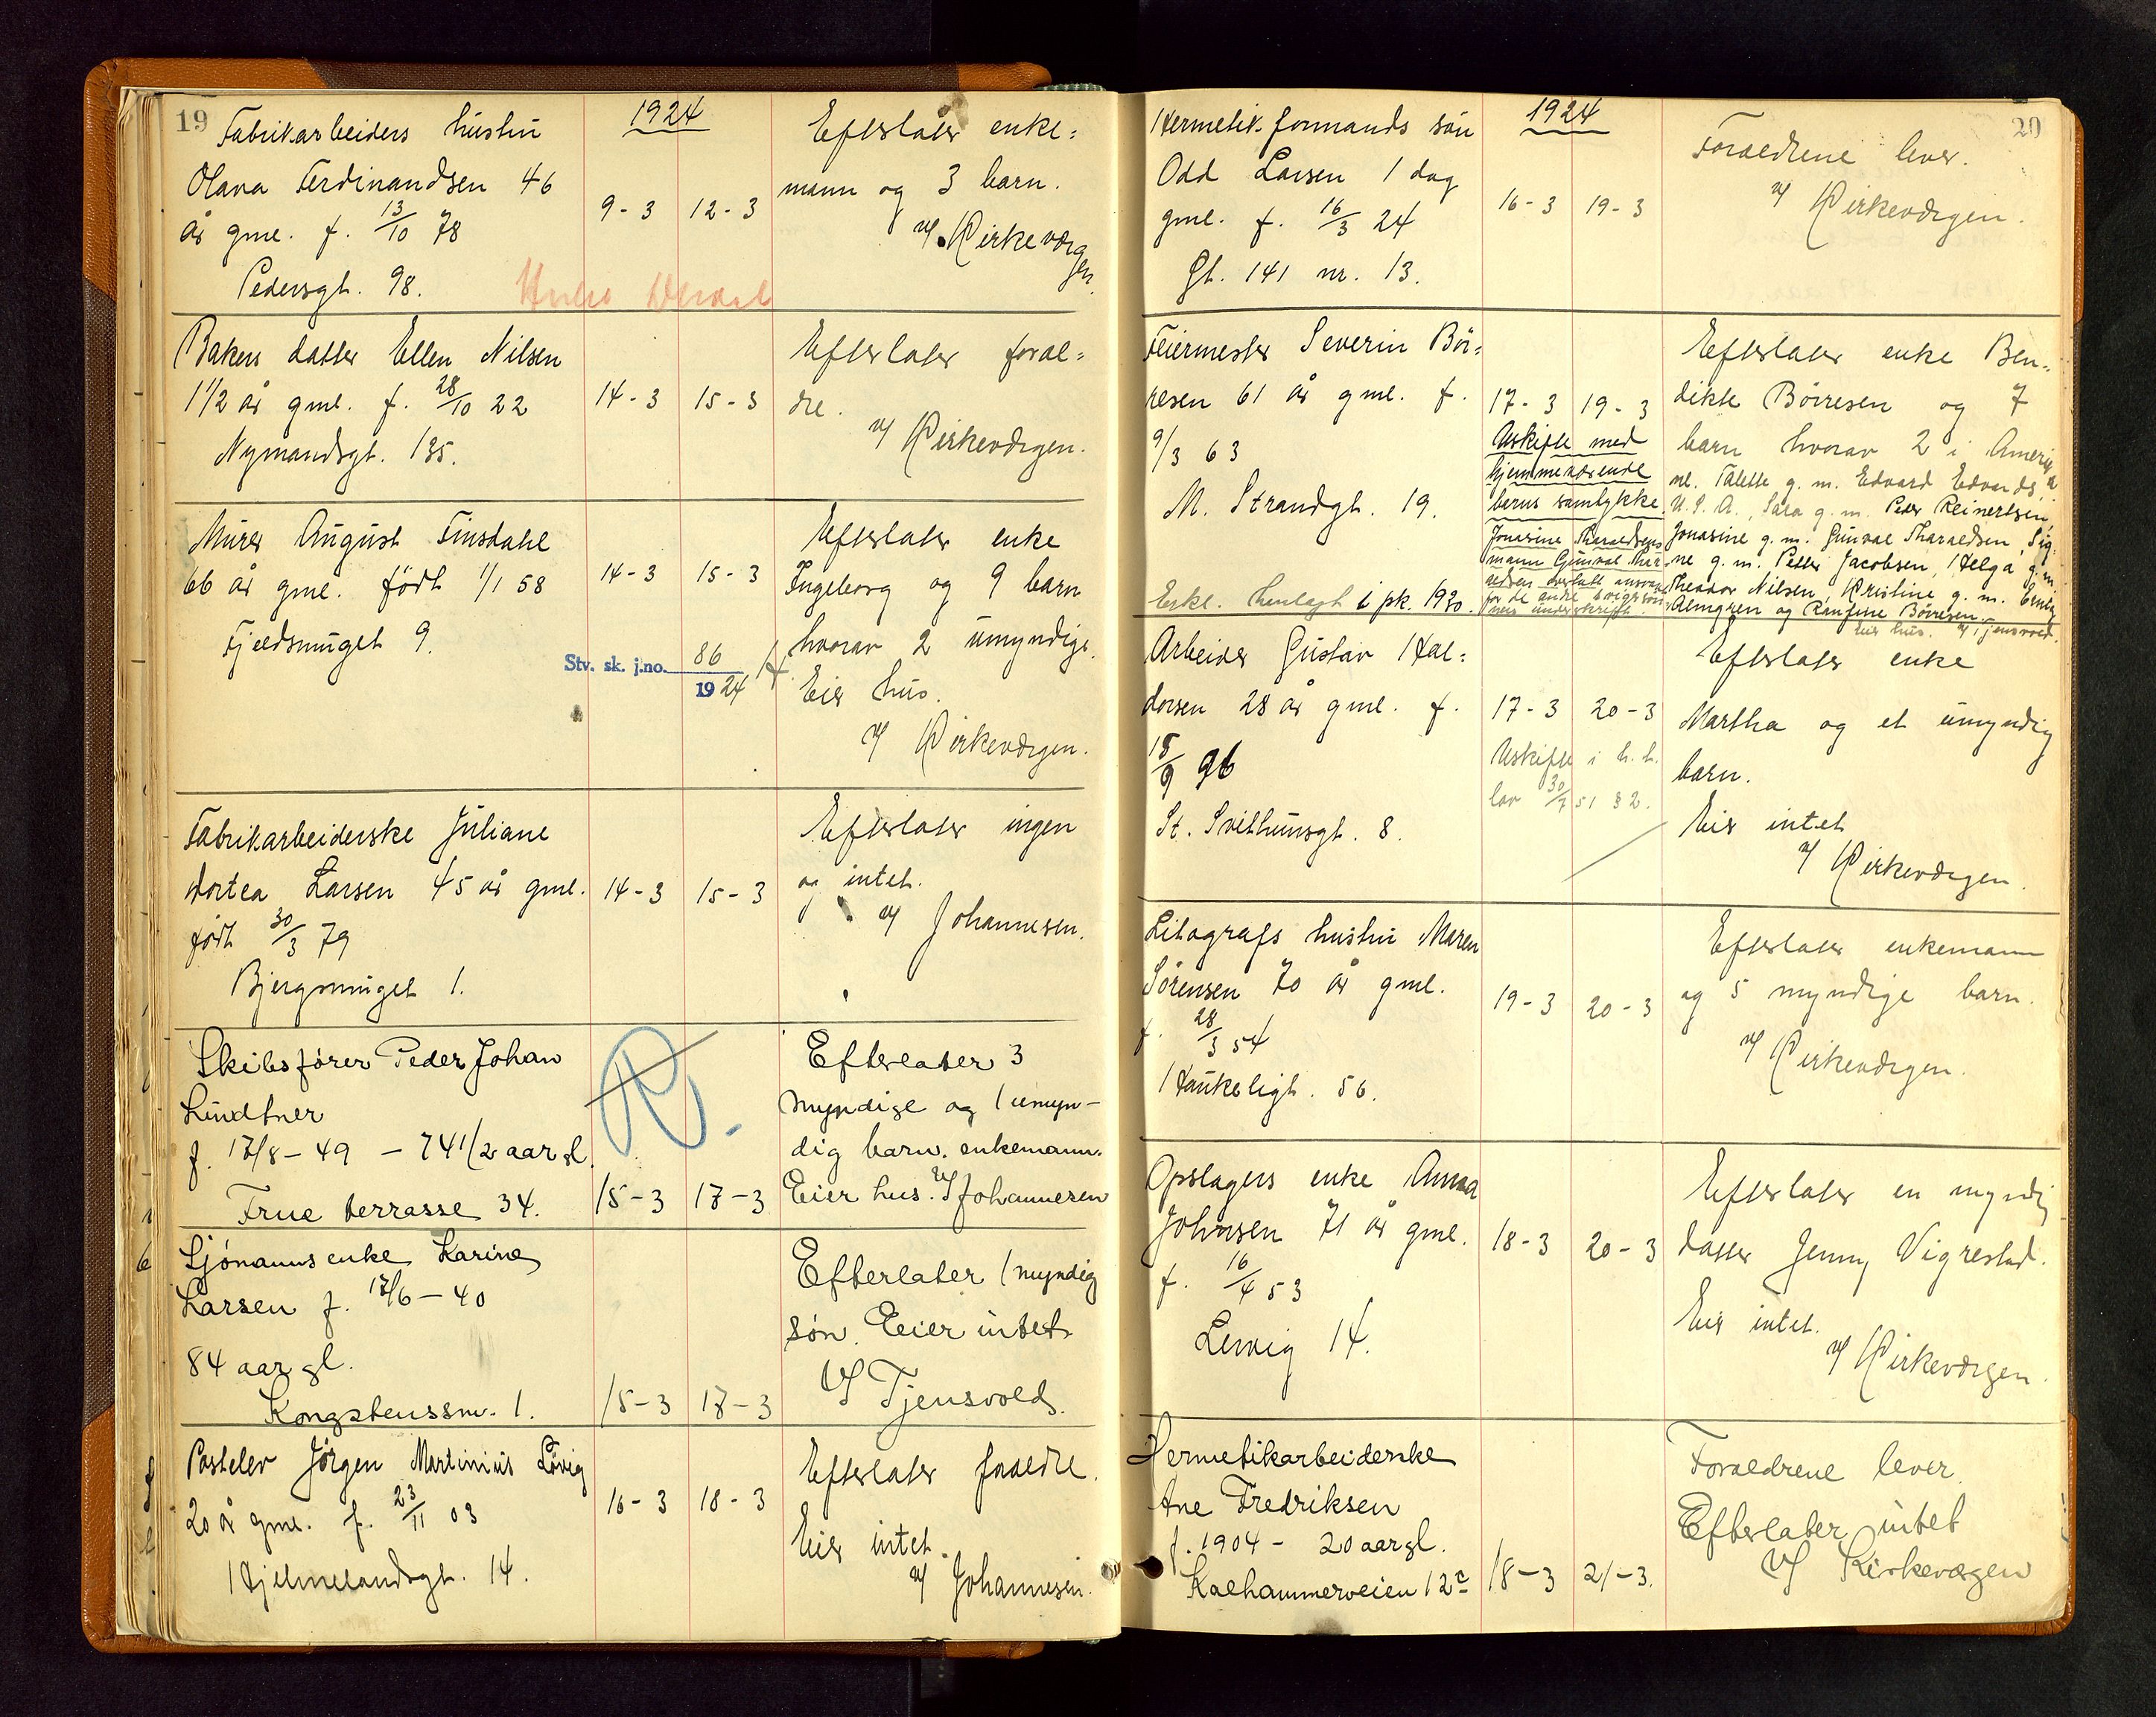 19
1924
Fabrikarbeiders hustru
Olava Ferdinandsen 46
år gml. f. 13/10 78
Pedersgt. 98.
9-3 12-3
Efterlater enke=
mann og 3 barn.
v/ Kirkevergen.
Bakers datter Ellen Nilsen
1 1/2 år gml. f. 28/10 22
Nymandsgt. 135.
14-3 15-3
Efterlater foræl=
dre.
v/ Kirkevergen.
Murer August Tinsdahl
66 år gml. født 1/1 58
Fjeldsmuget 9.
14-3 15-3
Stv. sk. j.no. 86
1924
Efterlater enke
Ingeborg og 9 barn
hvorav 2 umyndige.
Eier hus.
v/ Kirkevergen.
Fabrikarbeiderske Juliane
Dortea Larsen 45 år gml.
født 30/3 79
Bjergsmuget 1.
14-3 15-3
Efterlater ingen
og intet.
v/ Johannesen.
Skibsfører Peder Johan
Lindtner
f. 17/8-49 - 74 1/2 aar gl.
Frue terrasse 34.
R.
15-3 17-3
Efterlater 3
myndige og 1 umyn-
dig barn. enkemann.
Eier hus. v/ Johannesen
Sjömanns enke Karine
Larsen f. 17/6-40
84 aar gl.
Kongstenssm. 1.
15-3 17-3
Efterlater 1 myndig
søn. Eier intet
v/ Tjensvold.
Postelev Jörgen Martinius Lövig
20 år gml. f. 23/11 03
Hjelmelandsgt. 14.
16-3 18-3
Efterlater forældre.
Eier intet.
v/ Johannesen.
20
1924
Hermetik.formands sön
Odd Larsen 1 dag
gml. f. 16/3 24
Gt. 141 nr. 13.
16-3 19-3
Forældrene lever.
v/ Kirkevergen.
Feiermester Severin Bör=
resen 61 år gml. f.
9/3 63
N. Strandgt. 19.
Erkl. henlagt i pk. 1920.
17-3 19-3
Uskifte med
hjemmeværende
berns samtykke.
Jonasine Tharaldsens
mann Gunval Thar-
aldsen overtatt ansvar
for de andre svigersøn-
ners underskrift.
Efterlater enke Ben=
dikte Börresen og 7
barn hvorav 2 i Amerika
nl. Talette g. m. Edvard Edvards,
U.S.A., Sara g. m. Peder Reinertsen,
Jonasine g. m. Gunval Tharaldsen, Sig-
ne g. m. Petter Jacobsen, Helga g. m.
Theodor Nilsen, Kristine g. m. Erning
Almgren og Ranfine Börresen.
Eier hus. v/ Tjensvold.
Arbeider Gustav Hal=
dorsen 28 år gml. f.
15/9 96
St. Svithunsgt. 8.
17-3 20-3
Uskifte i h. t.
lov 30/7 51 § 2.
Efterlater enke
Martha og et umyndig
barn.
Eier intet
v/ Kirkevergen.
Litografs hustru Maren
Sörensen 70 år gml.
f. 28/3 54
Haukeligt. 56.
19-3 20-3
Efterlater enkemann
og 5 myndige barn.
v/ Kirkevergen.
Opslagers enke Anna
Johnsen 71 år gml.
f. 16/4 53
Lervig 14.
18-3 20-3
Efterlater en myndig
datter Jenny Vigrestad.
Eier intet.
v/ Kirkevergen.
Hermetikarbeiderske
Ane Fredriksen
f. 1904 - 20 aar gl.
Kalhammerveien 12c
18-3 21-3.
Forældrene lever.
Efterlater intet
v/ Kirkevergen